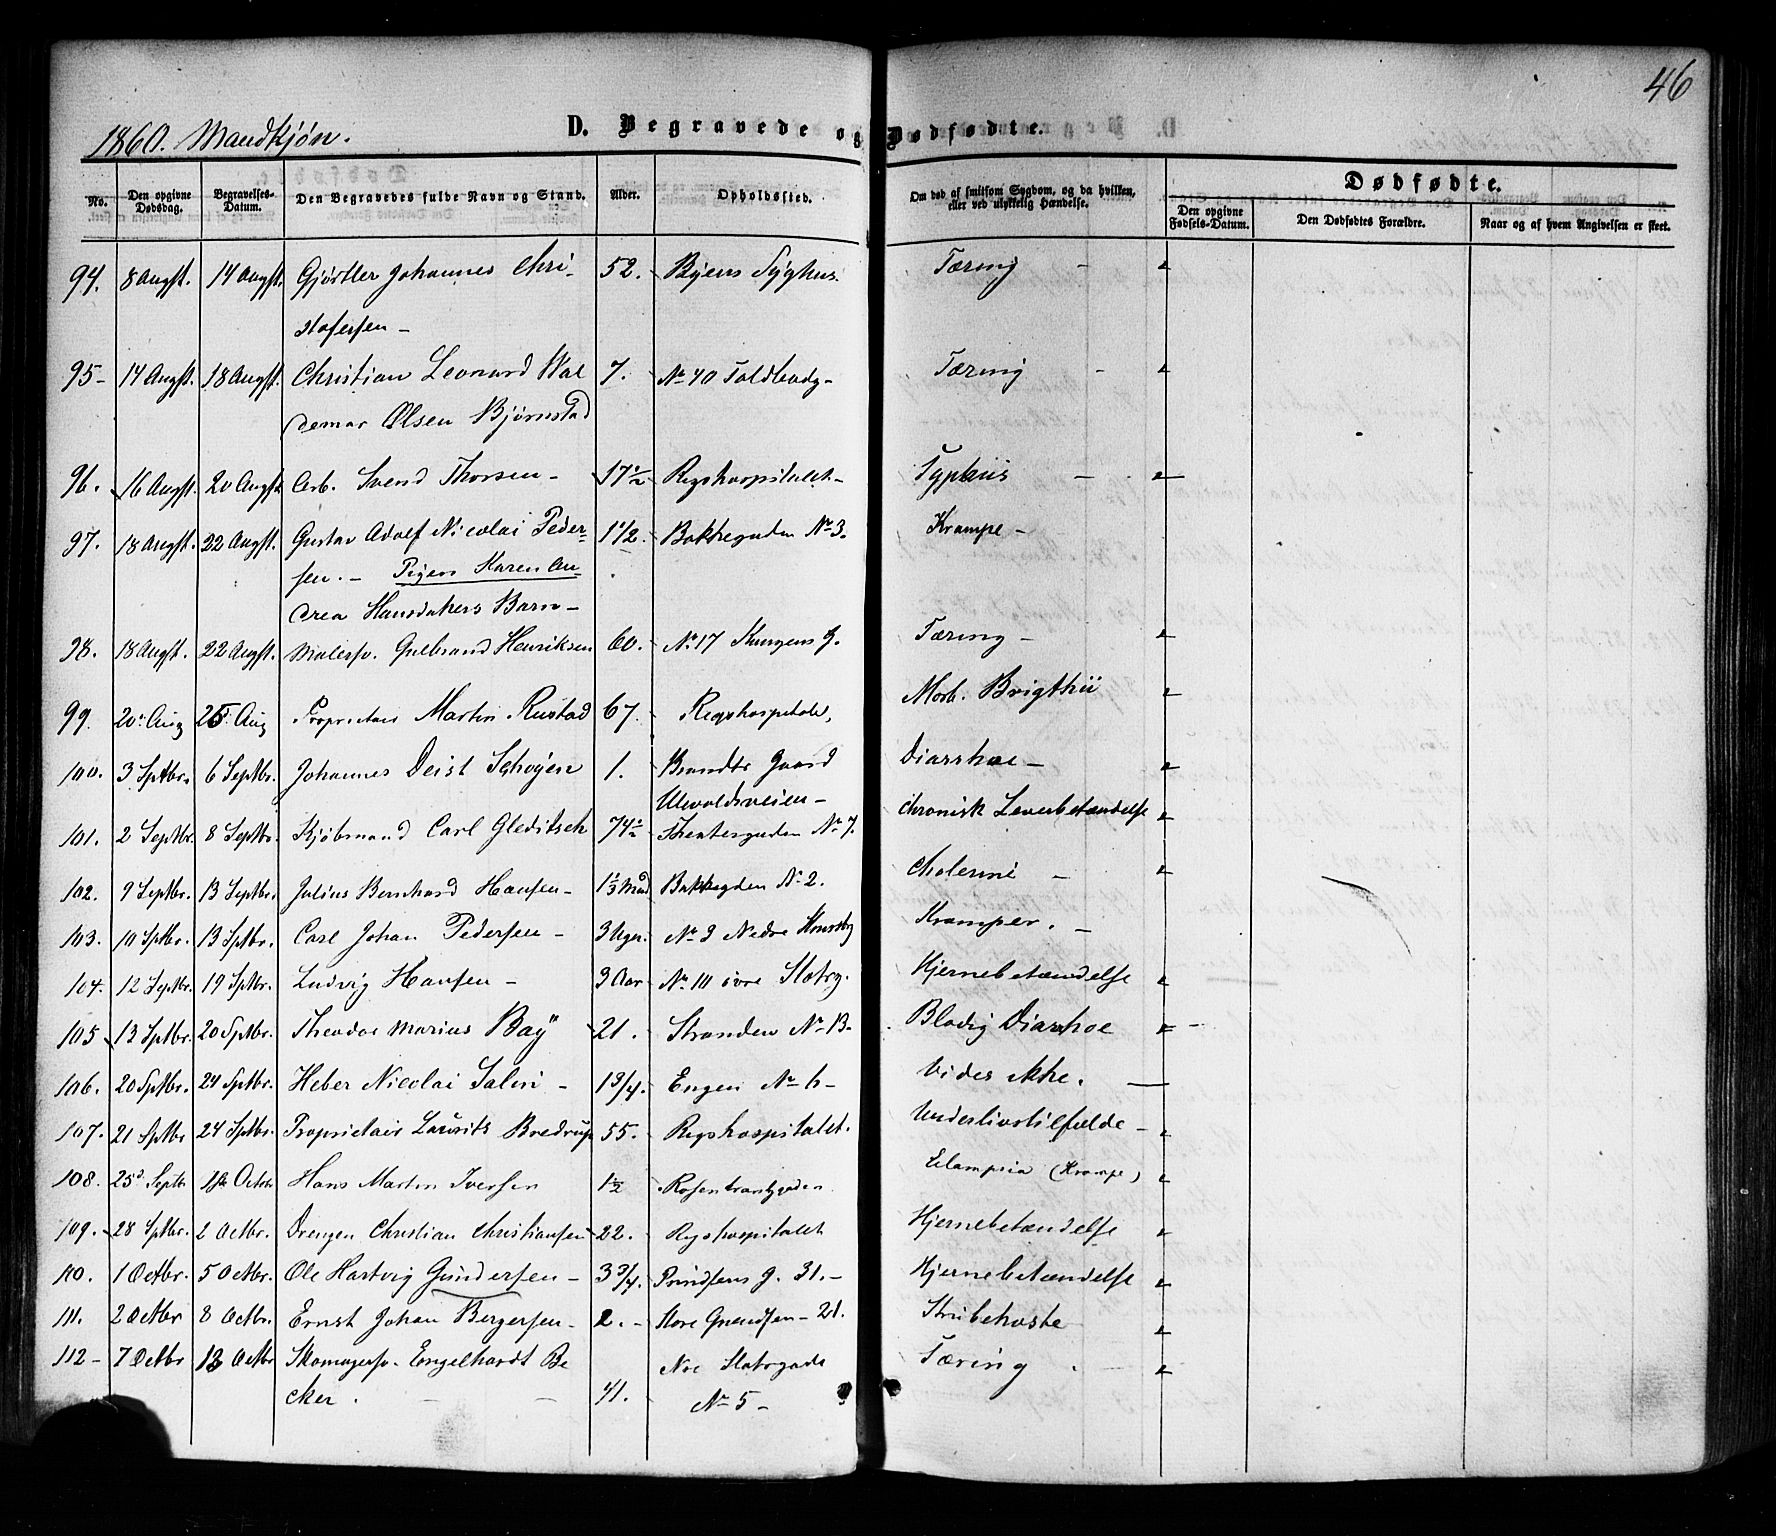 46
1860. Mandkjøn.
D. Begravede og Dødfødte.
No. Den opgivne Dødsdag. Begravelses-Datum. Den Begravedes fulde Navn og Stand. Alder. Opholdssted. Om død af smitsom Sygdom, og da hvilken, eller ved ulykkelig Hændelse. Dødfødte.
Den opgivne Fødsels-Datum. Den Dødfødtes Forældre. Naar og af hvem Angivelsen er skeet.
94. 8 Augst. 14 Augst. Gjørtler Johannes Chri- 52. Byens Syghus. Tæring -
stofersen -
95 - 14 Augst. 18 Augst. Christian Leonard Wal 7. No 40 Toldbodg - Tæring -
demar Olsen Bjørnstad
96. 16 Augst. 20 Augst. Arb. Svend Thorsen - 17½ Rigshospitalet - Typhus -
97. 18 Augst. 22 Augst. Gustav Adolf Nicolai Peder- 1½. Bakkegaden No 3. Krampe -
sen. - Pigen Karen An-
drea Hansdatters Barn -
98. 18 Augst. 22 Augst. Malersv. Gulbrand Henriksen 60. No 17 Kungens G. Tæring -
99. 20. Aug 25. Aug Proprietair Martin Rustad 67. Rigshospitalet, Morb. Brigthii
100. 3 Sptbr. 6 Septbr. Johannes Deist Schøyen 1. Brandts Gaard Diarrhoe -
Ulevoldsveien -
101. 2 Septbr. 8 Septbr. Kjøbmand Carl Gleditsch 74½ Theatergaden No 7. Chronisk Leverbetændelse
102. 9 Septbr. 13 Septbr. Julius Bernhard Hansen - 1⅓ Mnd Bakkegden No 2. Cholerine -
103. 10 Sptbr. 13 Sptbr. Carl Johan Pedersen - 3 Uger. No 9 Nedre Krampe. -
104. 12 Septbr. 19 Sptbr. Ludvig Hansen - 3 Aar No 10 övre Slotsg. Hjernebetændelse
105 13 Sptbr. 20 Sptbr. Theodor Marius Bay 21. Stranden No B- Blodig Diarrhoe
106. 20 Sptbr. 24 Sptbr. Heber Nicolai - 1¾. Engen No 6 - Vides ikke.
107. 21 Sptbr 24 Sptbr. Proprietair Laurits Bredrup 55. Rigshospitalet. Underlivstilfælde -
108. 25d Septbr 1ste Octbr Hans Martin Iversen 1½ Rosenkrantzgaden Eclampsia (Krampe)
109. 28 Sptbr. 2 Octbr. Drengen Christian Christiansen 22. Rigshospitalet Hjernebetændelse
110. 1 Octbr. 5 Octbr. Ole Hartvig Gundersen - 3¾. Prindsens g. 31. - Hjernebetændelse
111. 2 Octbr 8 Octbr. Ernst Johan Bergersen - 2. - Store Grendsen - 21. Strubehoste
112 - 7 Octbr 13 Octbr Skomagersv. Engelhardt Be Slotsgade Tæring
cker. - - 41. No 5 -